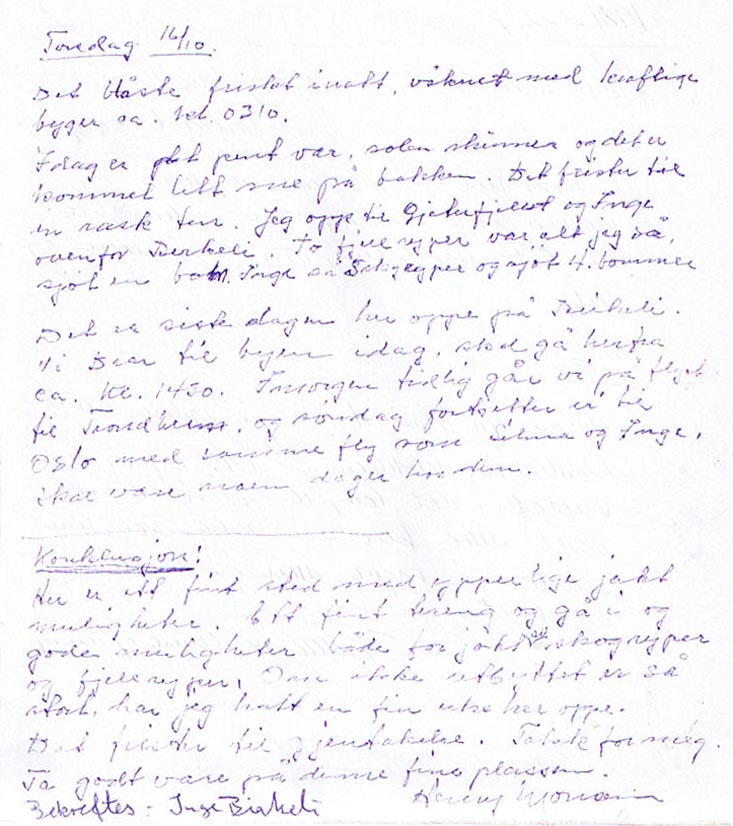 Torsdag 16/10.
Det blåste friskt inatt, våknet med kraftige
byger ca. kl. 0310.
Idag er det pent vær, solen skinner og det er
kommet litt sne på bakken. Det frister til
en rask tur. Jeg oppe til Gjeterfjellet og Inge
ovenfor Birkeli. To fjellryper var alt jeg så,
sjøt en bom. Inge så skogryper og sjøt 4. bommer
Det er siste dagen her oppe på Birkeli.
Vi drar til byen idag, skal gå herfra
ca. kl. 1450. Imorgen tidlig går vi på flyet
til Trondheim, og søndag fortsetter vi til
Oslo med samme fly som og Inge,
skal være noen dager hos dem.
Konklusjon!
Her er ett fint sted med ypperlige jakt
muligheter. Ett fint tereng og gå i og
gode muligheter både for jakt av skogryper
og fjellryper. Om ikke utbyttet er så
stort, har jeg hatt en fin uke her oppe.
Det frister til gjentakelse. Takk for meg.
Ta godt vare på denne fine plassen.
Bekreftes - Inge Birkeli Henry